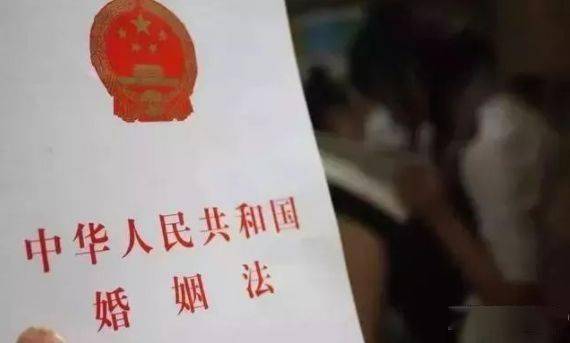 中华人民共和国
婚姻法